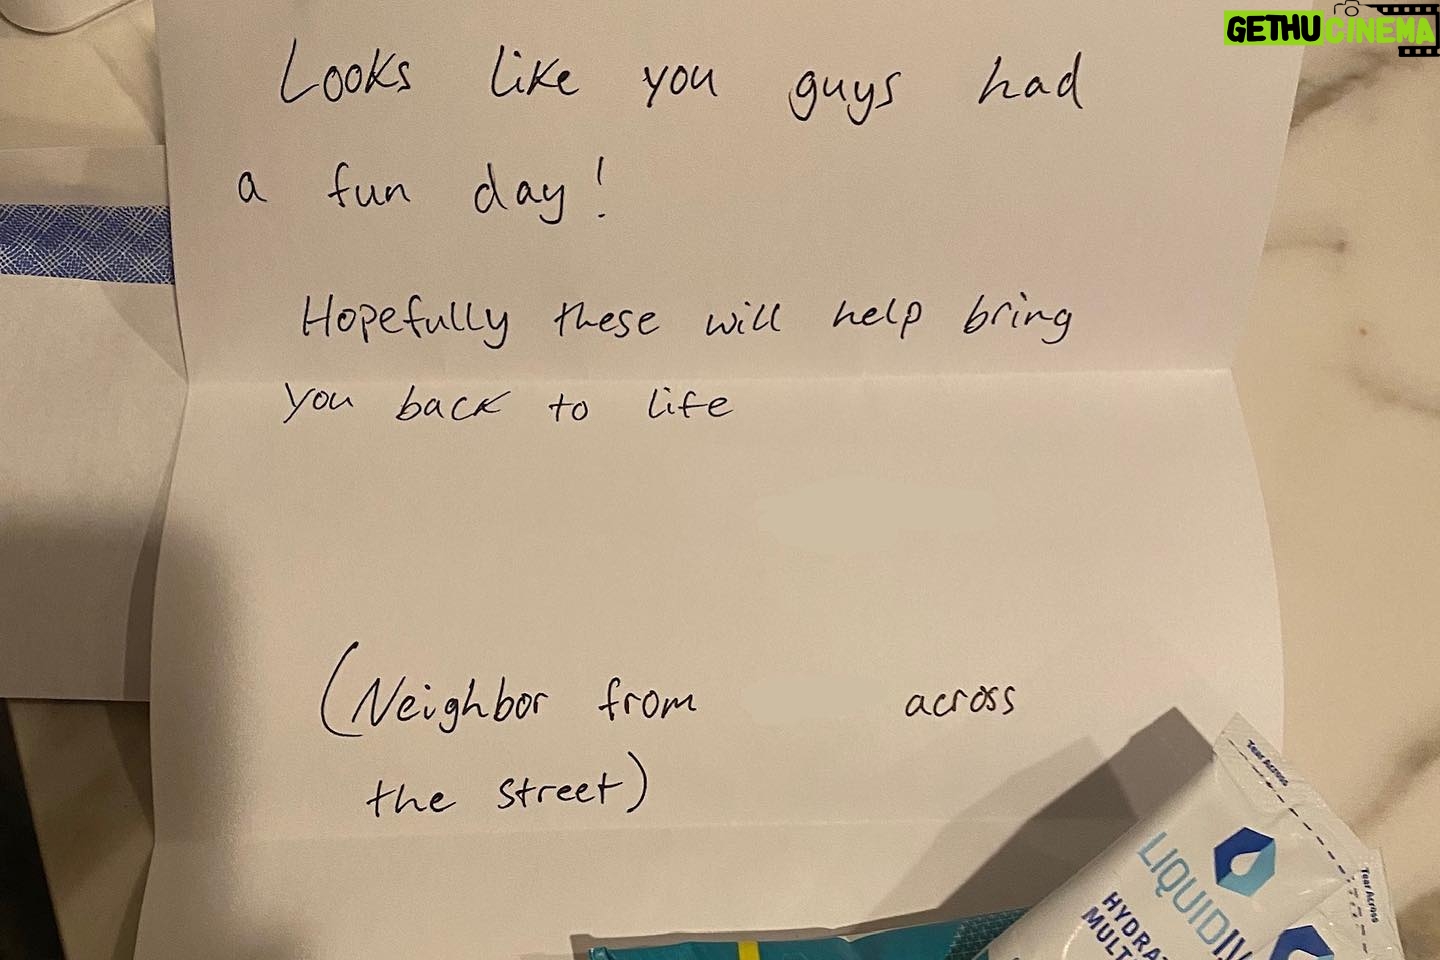 GETHUCINEMA
Looks like you guys had
a fun day!
Hopefully these will help bring
you back to life
(Neighbor from across
the street)
Tear Across
Tear Across
LIQUID
HYDRA
MULT